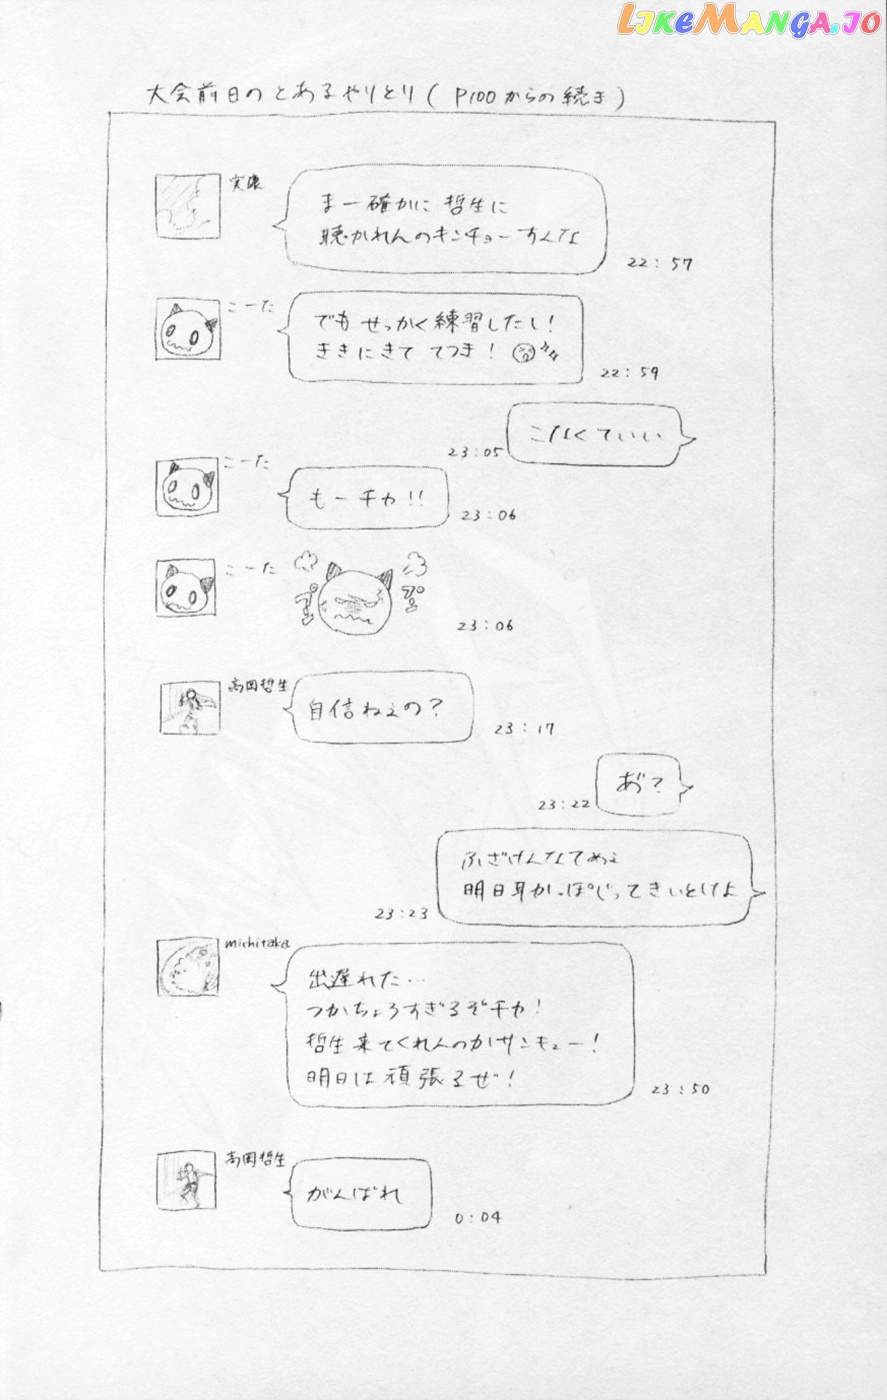 LIKEMANGA.IO
大会前日のとあるやりとり(P100からの続き)
実康
まー確かに哲生に
聴かれんのキンチョーすんな
22:57
こーた
でもせっかく練習したし!
ききにきて てつき!
22:59
こなくていい
23:05
こーた
もーチカ!!
23:06
こーた
プン
プン
23:06
高岡哲生
自信ねぇの?
23:17
あ゙?
23:22
ふざけんなてめぇ
明日耳かっぽじってきいとけよ
23:23
michitaka
出遅れた…
つかちょろすぎるぞチカ!
哲生来てくれんのか!サンキュー!
明日は頑張るぜ!
23:50
高岡哲生
がんばれ
0:04